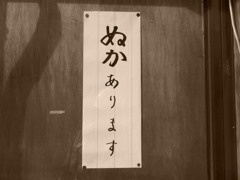 ぬか あります